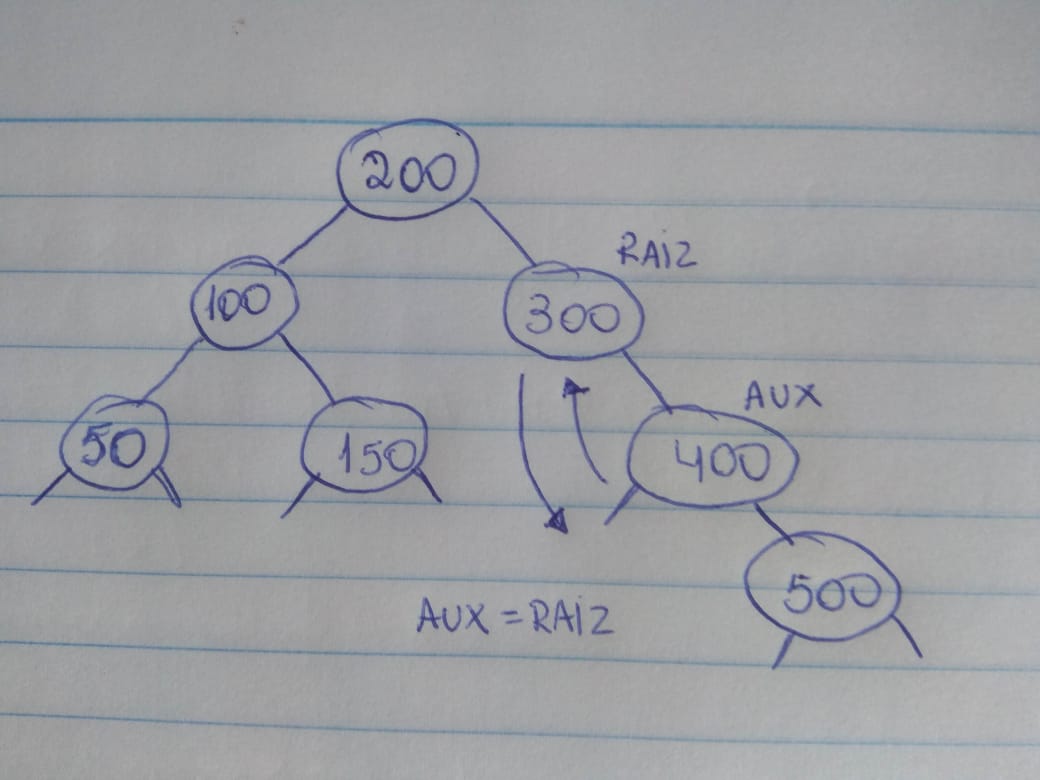 200
RAIZ
100
300
AUX
50
150
400
500
AUX = RAIZ